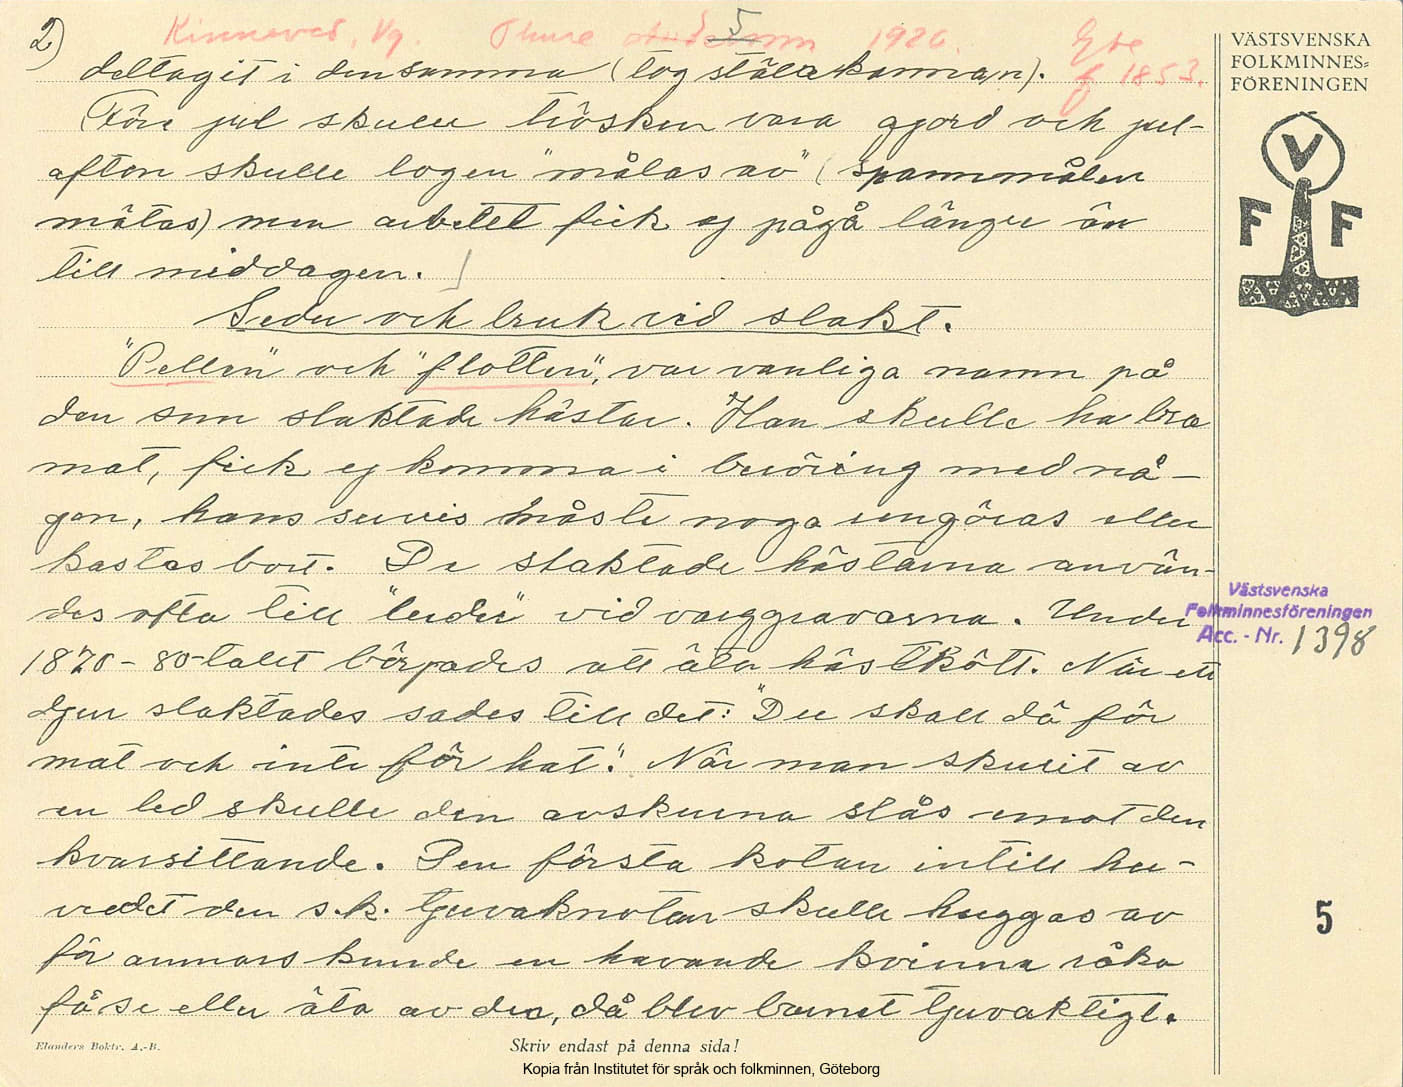 2)
Kinneved, Vg. Thure 1926.
5
Gbe
f 1853.
deltagit i densamma (tog stålekannan).
Före jul skulle trösken vara gjord och jul-
afton skulle logen "målas av" (spannmålen
mätas) men arbetet fick ej pågå längre än
till middagen.
Seder och bruk vid slakt.
"Pellen" och "flotten", var vanliga namn på
den som slaktade hästar. Han skulle ha bra
mat, fick ej komma i beröring med nå-
gon, hans servis måste noga rengöras eller
kastas bort. De slaktade hästarna använ-
des ofta till "luder" vid varggravarna. Under
1870-80-talet börjades att äta hästkött. När ett
djur slaktades sades till det: "Du skall dö för
mat och inte för hat". När man skurit av
en led skulle den avskurna slås emot den
kvarsittande. Den första kotan intill hu-
vudet den s.k. tjuvaknotan skulle huggas av
för annars kunde en havande kvinna råka
få se eller äta av den, då blev barnet tjuvaktigt.
VÄSTSVENSKA
FOLKMINNES-
FÖRENINGEN
V
F F
Västsvenska
Folkminnesföreningen
Acc. - Nr. 1398
5
Elanders Boktr. A.-B.
Skriv endast på denna sida!
Kopia från Institutet för språk och folkminnen, Göteborg